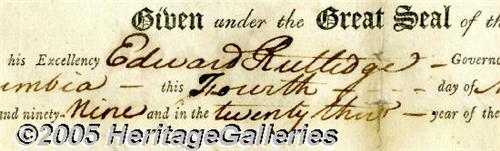 Given under the Great Seal of th
his Excellency Edward Rutledge - Governo
umbia - this Fourth - day of
and ninety-Nine and in the twenty third - year of the
©2005 HeritageGalleries